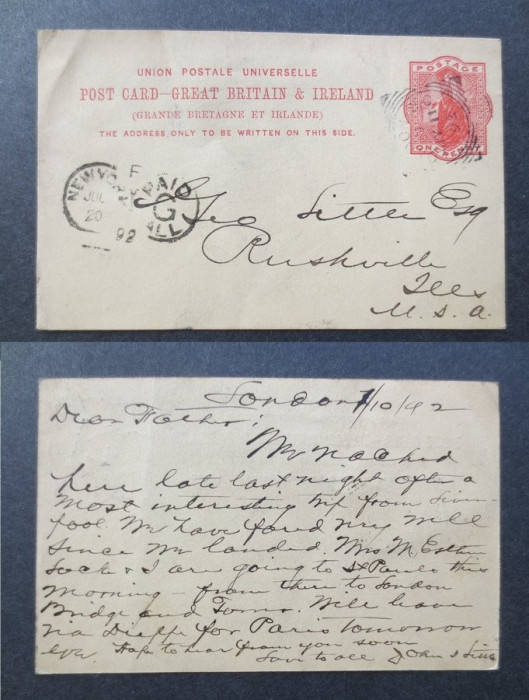 UNION POSTALE UNIVERSELLE
POST CARD—GREAT BRITAIN & IRELAND
(GRANDE BRETAGNE ET IRLANDE)
THE ADDRESS ONLY TO BE WRITTEN ON THIS SIDE.
POSTAGE
ONE PENNY
NEW YORK
JUL
20
92
PAID
G
ALL
Geo Little Esq
Rushville
Ills
U.S.A.
London 7/10/92
Dear Father;
We reached
here late last night after a
most interesting trip from Liver-
pool. We have fared very well
since we landed. Mrs M, Esther
& I are going to St Pauls this
morning - from there to London
Bridge and Tower. Will leave
via Dieppe for Paris tomorrow
eve. Hope to hear from you soon
Love to all John S Little